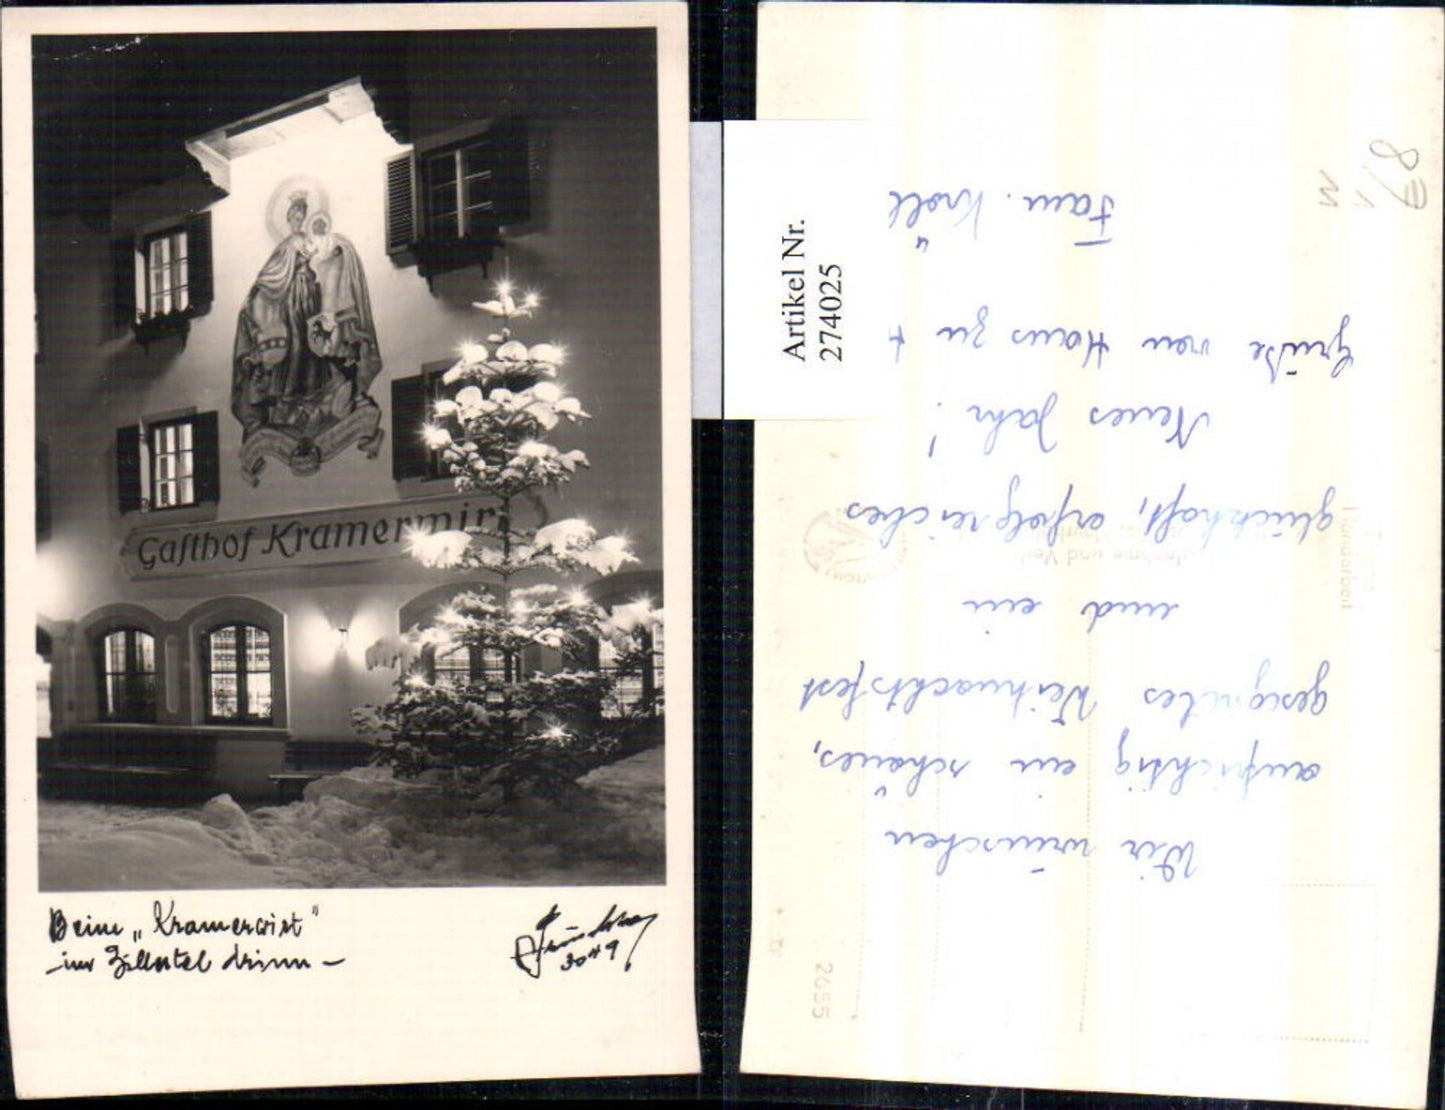 Gasthof Kramerwirt
Beim „Kramerwirt"
- im Zillertal drinn -
3049
Artikel Nr.
2744025
Wir wünschen
aufrichtig ein schönes,
gesegnetes Weihnachtsfest
und ein
glückhaft, erfolgreiches
Neues Jahr!
Grüße von Haus zu H
Fam. Kröll
87
1
M
2655
Handarbeit